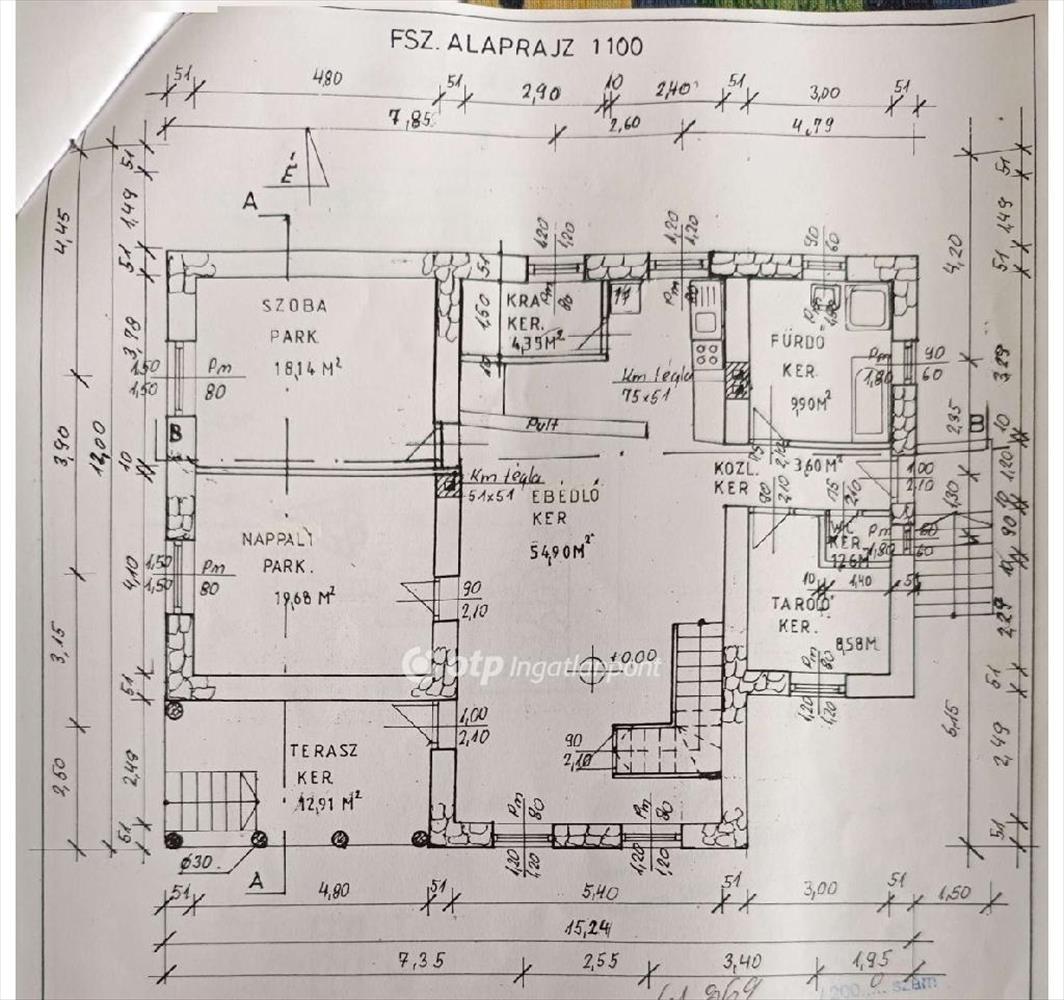 FSZ. ALAPRAJZ 1100
51 4,80 51 2,90 10 2,40 51 3,00 51
7,85 2,60 4,79
É
A
51 1,49 51 3,78 10 4,10 51 2,49 51
12,00
4,45 3,90 3,15 2,50
SZOBA
PARK
18,14 M²
1,50
1,50
Pm
80
B
NAPPALI
PARK.
19,68 M²
1,50
1,50
Pm
80
TERASZ
KER
12,91 M²
Ø30
A
1,20
1,20
Pm
80
51
1,50
10
KRA
KER.
4,35 M²
1,20
1,20
Pm
80
Km tégla
75x51
Pult
Km tégla
51x51
EBÉDLŐ
KER
54,90 M²
90
2,10
1,00
2,10
±0,00
90
2,10
otp Ingatlanpont
90
60
Pm
1,80
FÜRDŐ
KER.
9,90 M²
Pm
1,80
90
60
75
2,10
KÖZL.
KER
3,60 M²
1,00
2,10
90
2,10
75
2,10
WC
KER.
1,26 M²
Pm
1,80
60
60
10 1,40 51
TÁROLÓ
KER.
8,58 M
Pm
80
1,20
1,20
B
4,20 2,35 1,30 6,15
51 1,49 51 3,29 10 1,20 10 90 10 2,29 51 2,49 51
Pm
80
1,20
1,20
Pm
80
1,20
1,20
51 4,80 51 5,40 51 3,00 51 1,50
15,24
7,35 2,55 3,40 1,95